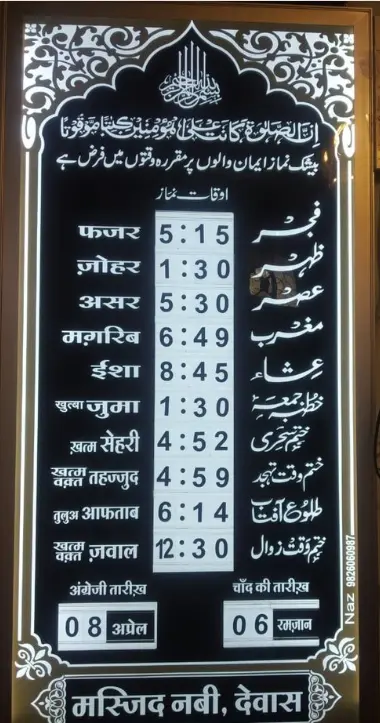 بسم الله الرحمن الرحيم
اِنَّ الصَّلٰوۃَ کَانَتْ عَلَی الْمُؤْمِنِیْنَ کِتٰبًا مَّوْقُوْتًا
بیشک نماز ایمان والوں پر مقررہ وقتوں میں فرض ہے
اوقات نماز
फजर 5:15 فجر
ज़ोहर 1:30 ظہر
असर 5:30 عصر
मग़रिब 6:49 مغرب
ईशा 8:45 عشاء
खुत्बा जुमा 1:30 خطبہ جمعہ
ख़त्म सेहरी 4:52 ختم سحری
ख़त्म वक़्त तहज्जुद 4:59 ختم وقت تہجد
तुलुअ आफताब 6:14 طلوع آفتاب
ख़त्म वक़्त ज़वाल 12:30 ختم وقت زوال
अंग्रेजी तारीख़ चाँद की तारीख़
08 अप्रेल 06 रमज़ान
Naz 9826060987
मस्जिद नबी, देवास